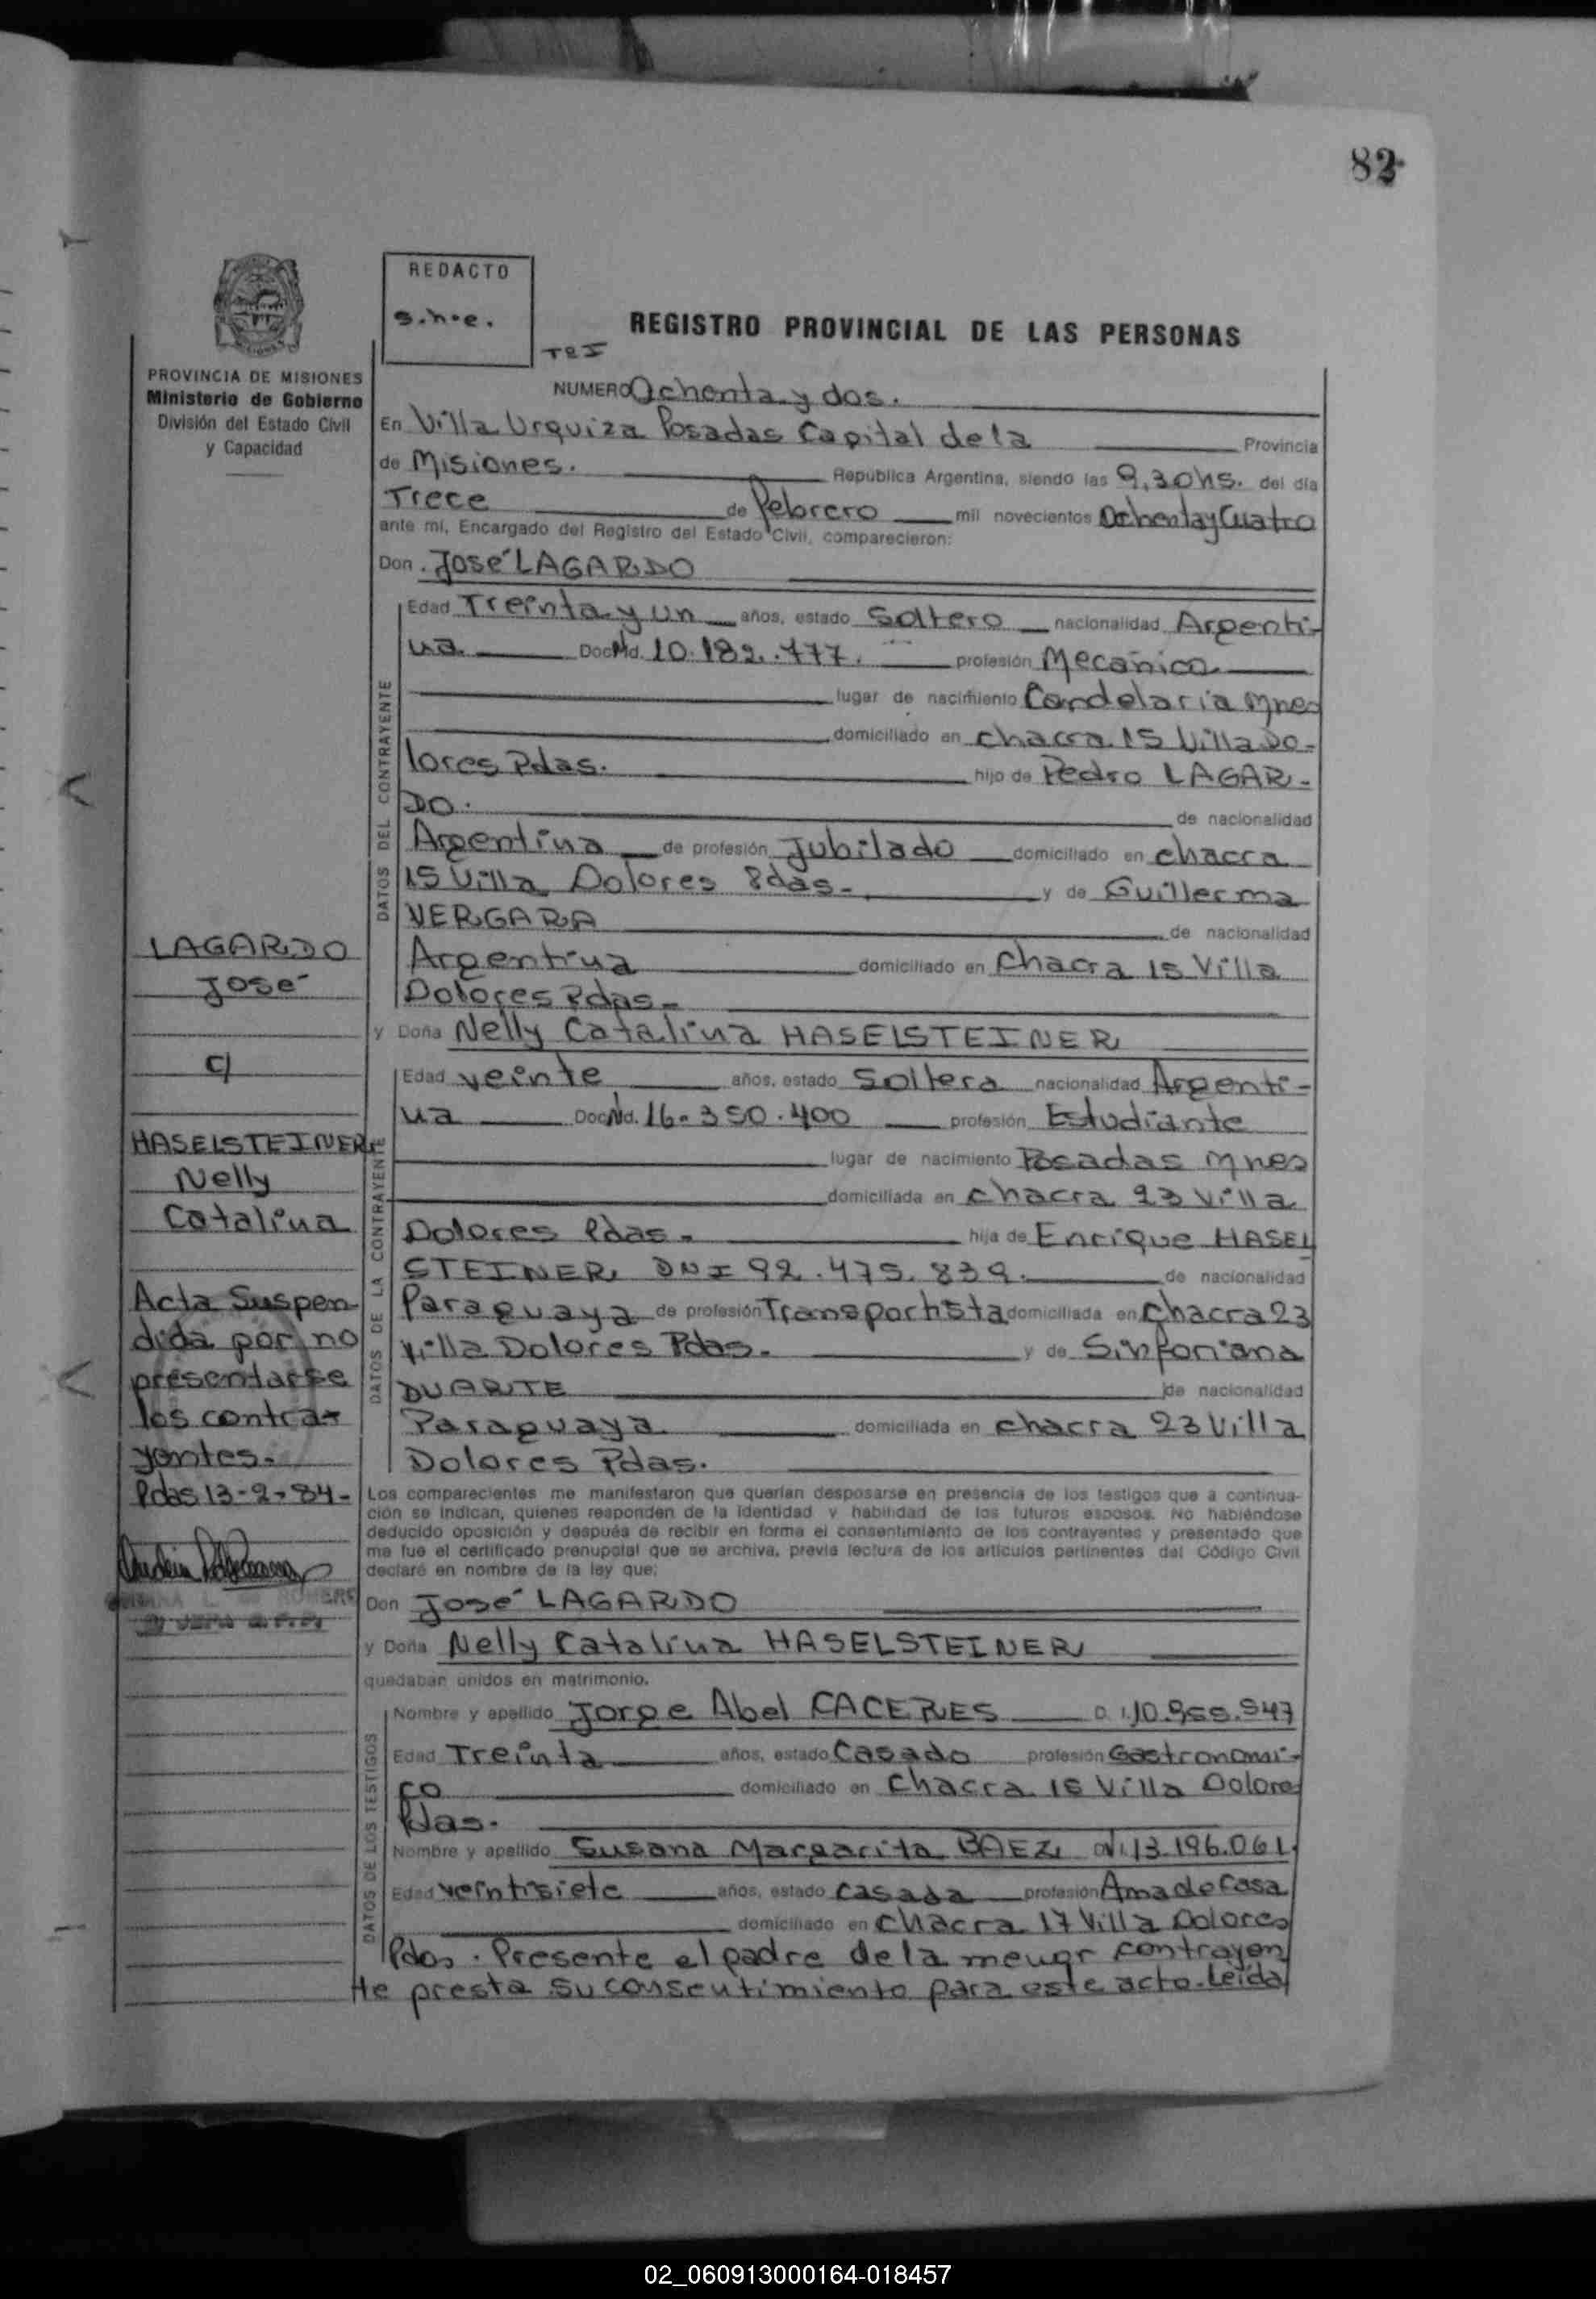 82
REDACTO
s.h.e.
REGISTRO PROVINCIAL DE LAS PERSONAS
PROVINCIA DE MISIONES
Ministerio de Gobierno
División del Estado Civil
y Capacidad
NUMERO Ochenta y dos.
En Villa Urquiza Posadas Capital de la Provincia
de Misiones. República Argentina, siendo las 9,30hs. del día
Trece de Febrero mil novecientos Ochenta y Cuatro
ante mí, Encargado del Registro del Estado Civil, comparecieron:
Don. José LAGARDO
DATOS DEL CONTRAYENTE
Edad Treinta y un años, estado Soltero nacionalidad Argenti-
na Doc. Nd. 10.182.477. profesión Mecánico
lugar de nacimiento Candelaria Mnes
domiciliado en chacra 15 Villa Do-
lores Pdas. hijo de Pedro LAGAR-
DO. de nacionalidad
Argentina de profesión Jubilado domiciliado en chacra
15 Villa Dolores Pdas- y de Guillerma
VERGARA de nacionalidad
Argentina domiciliado en Chacra 15 Villa
Dolores Pdas-
y Doña Nelly Catalina HASELSTEINER
DATOS DE LA CONTRAYENTE
Edad veinte años, estado Soltera nacionalidad Argenti-
na Doc. Nd. 16.350.400 profesión Estudiante
lugar de nacimiento Posadas Mnes
domiciliada en chacra 23 Villa
Dolores Pdas- hija de Enrique HASEL
STEINER DNI 92.475.839. de nacionalidad
Paraguaya de profesión Transportista domiciliada en Chacra 23
Villa Dolores Pdas. y de Sinforiana
DUARTE de nacionalidad
Paraguaya domiciliada en chacra 23 Villa
Dolores Pdas.
LAGARDO
José
c/
HASELSTEINER
Nelly
Catalina
Acta Suspen
dida por no
presentarse
los contra-
yentes.
Pdas 13-2-84-
Los comparecientes me manifestaron que querían desposarse en presencia de los testigos que a continua-
ción se indican, quienes responden de la identidad y habilidad de los futuros esposos. No habiéndose
deducido oposición y después de recibir en forma el consentimiento de los contrayentes y presentado que
me fue el certificado prenupcial que se archiva, previa lectura de los artículos pertinentes del Código Civil
declaré en nombre de la ley que:
Don José LAGARDO
y Doña Nelly Catalina HASELSTEINER
quedaban unidos en matrimonio.
DATOS DE LOS TESTIGOS
Nombre y apellido Jorge Abel CACERES D.I. 10.955.947
Edad Treinta años, estado Casado profesión Gastronomi-
co domiciliado en Chacra 15 Villa Dolores
Pdas.
Nombre y apellido Susana Margarita BAEZ 13.196.061.
Edad veintisiete años, estado casada profesión Ama de Casa
domiciliado en Chacra 17 Villa Dolores
Pdas. Presente el padre de la menor contrayen
te presta su consentimiento para este acto. Leída
02_060913000164-018457